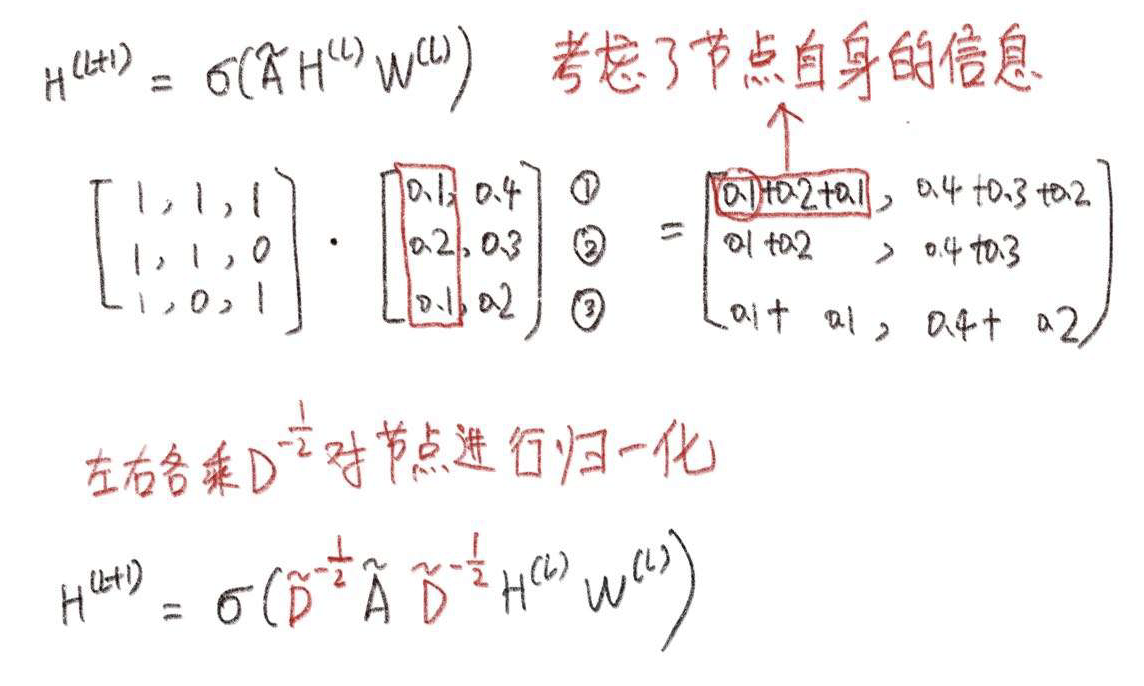 H^(L+1) = σ(Ã H^(L) W^(L)) 考虑了节点自身的信息
[1, 1, 1] · [0.1, 0.4] ① = [0.1+0.2+0.1, 0.4+0.3+0.2]
[1, 1, 0] [0.2, 0.3] ② [0.1+0.2, 0.4+0.3]
[1, 0, 1] [0.1, 0.2] ③ [0.1+ 0.1, 0.4+ 0.2]
左右各乘D^-1/2对节点进行归一化
H^(L+1) = σ(D̃^-1/2 Ã D̃^-1/2 H^(L) W^(L))